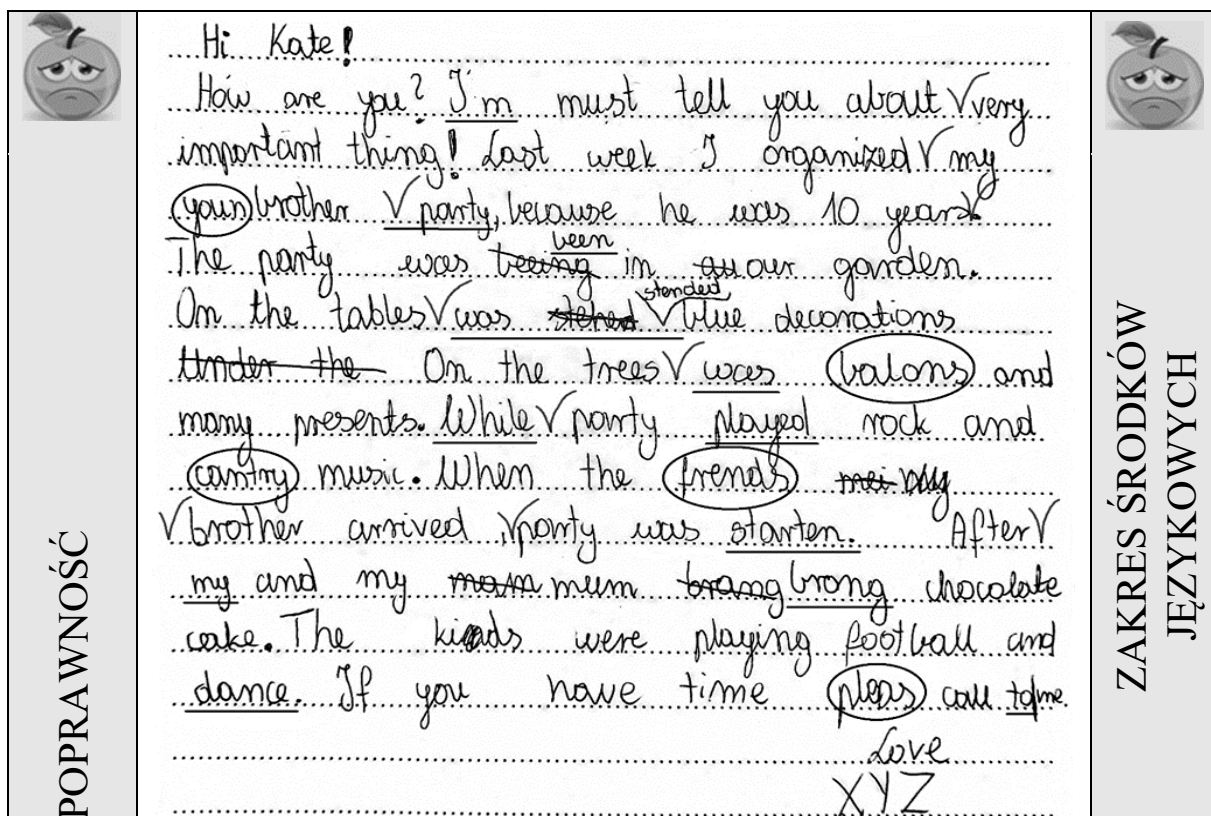 POPRAWNOŚĆ
Hi Kate!
How are you? I'm must tell you about √ very
important thing! Last week I organized √ my
youn brother √ party, because he was 10 years √.
The party was beeing been in our garden.
On the tables √ was stended √ blue decorations
Under the On the trees √ was balons and
many presents. While √ party played rock and
cantry music. When the frends my
√ brother arrived, √ party was starten. After √
my and my mam mum brang brong chocolate
cake. The kinds were playing football and
dance. If you have time pleas call to me.
Love
XYZ
ZAKRES ŚRODKÓW
JĘZYKOWYCH